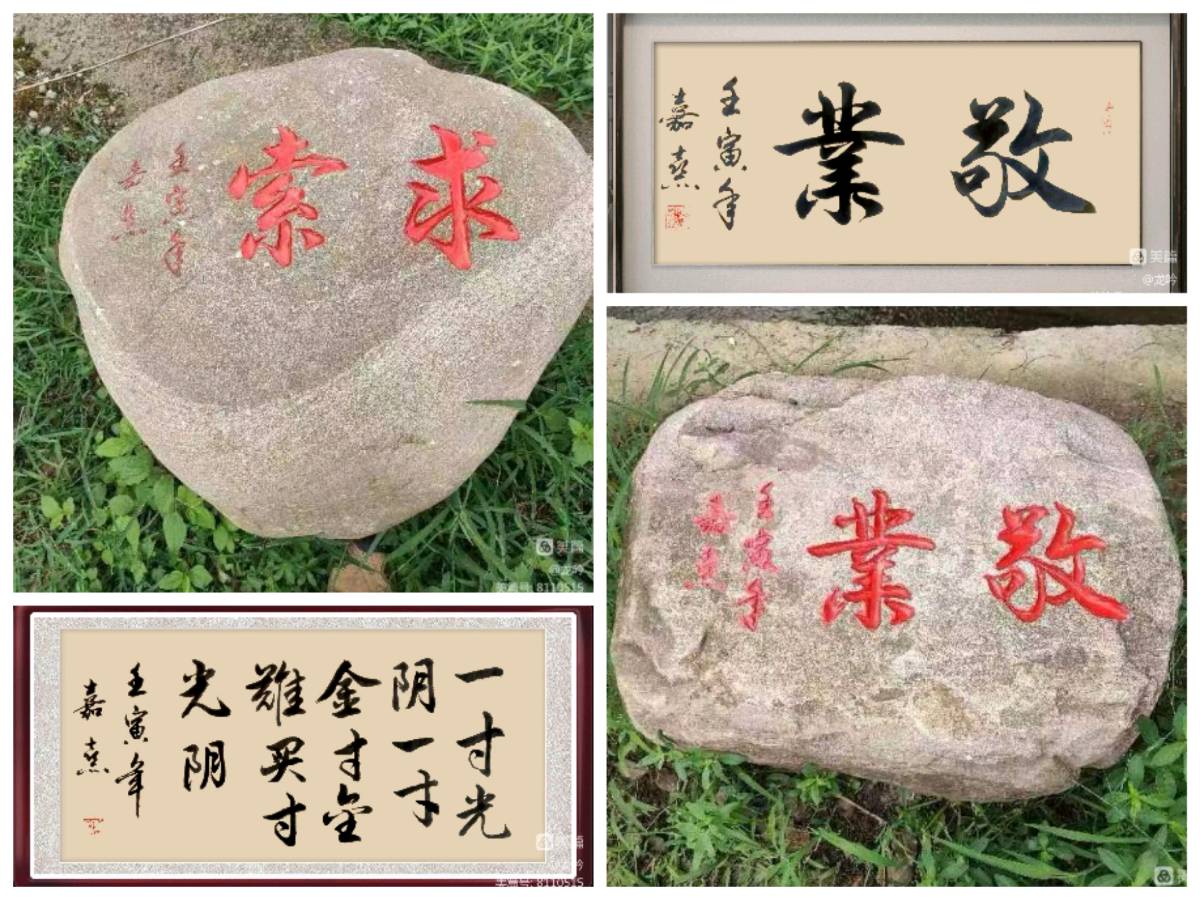 求索
壬寅年
嘉
美篇
@龙吟
美篇号: 8110515
敬業
壬寅年
嘉
美篇
@龙吟
一寸光
阴一寸
金寸金
難买寸
光阴
壬寅年
嘉
美篇号: 8110515
敬業
壬寅年
嘉